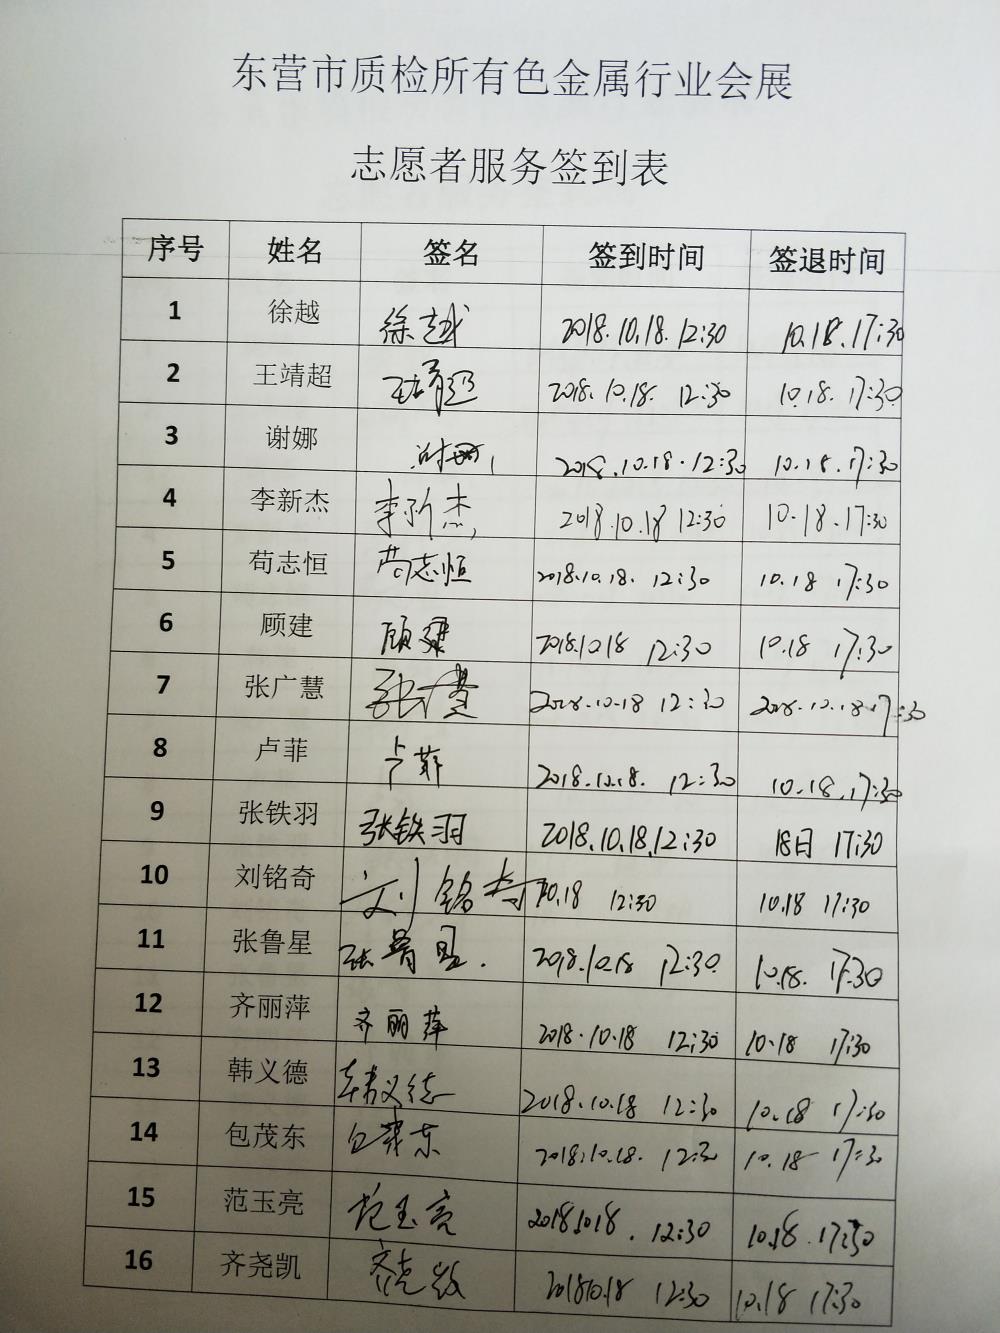 东营市质检所有色金属行业会展
志愿者服务签到表
序号 姓名 签名 签到时间 签退时间
1 徐越 徐越 2018.10.18. 12:30 10.18.17:30
2 王靖超 王靖超 2018.10.18. 12:30 10.18. 17:30
3 谢娜 2018.10.18.12:30 10.18.17:30
4 李新杰 李新杰 2018.10.18 12:30 10.18.17:30
5 苟志恒 苟志恒 2018.10.18. 12:30 10.18 17:30
6 顾建 顾建 2018.10.18 12:30 10.18 17:30
7 张广慧 张广慧 2018.10.18 12:30 2018.10.18.17:30
8 卢菲 卢菲 2018.10.18. 12:30 10.18.17:30
9 张铁羽 张铁羽 2018.10.18.12:30 18日 17:30
10 刘铭奇 刘铭奇 10.18 12:30 10.18 17:30
11 张鲁星 张鲁星. 2018.10.18 12:30 10.18. 17:30
12 齐丽萍 齐丽萍 2018.10.18 12:30 10.18 17:30
13 韩义德 韩义德 2018.10.18 12:30 10.18 17:30
14 包茂东 包茂东 2018.10.18. 12:30 10.18 17:30
15 范玉亮 范玉亮 2018.10.18. 12:30 10.18.17:30
16 齐尧凯 齐尧凯 2018.10.18 12:30 10.18 17:30